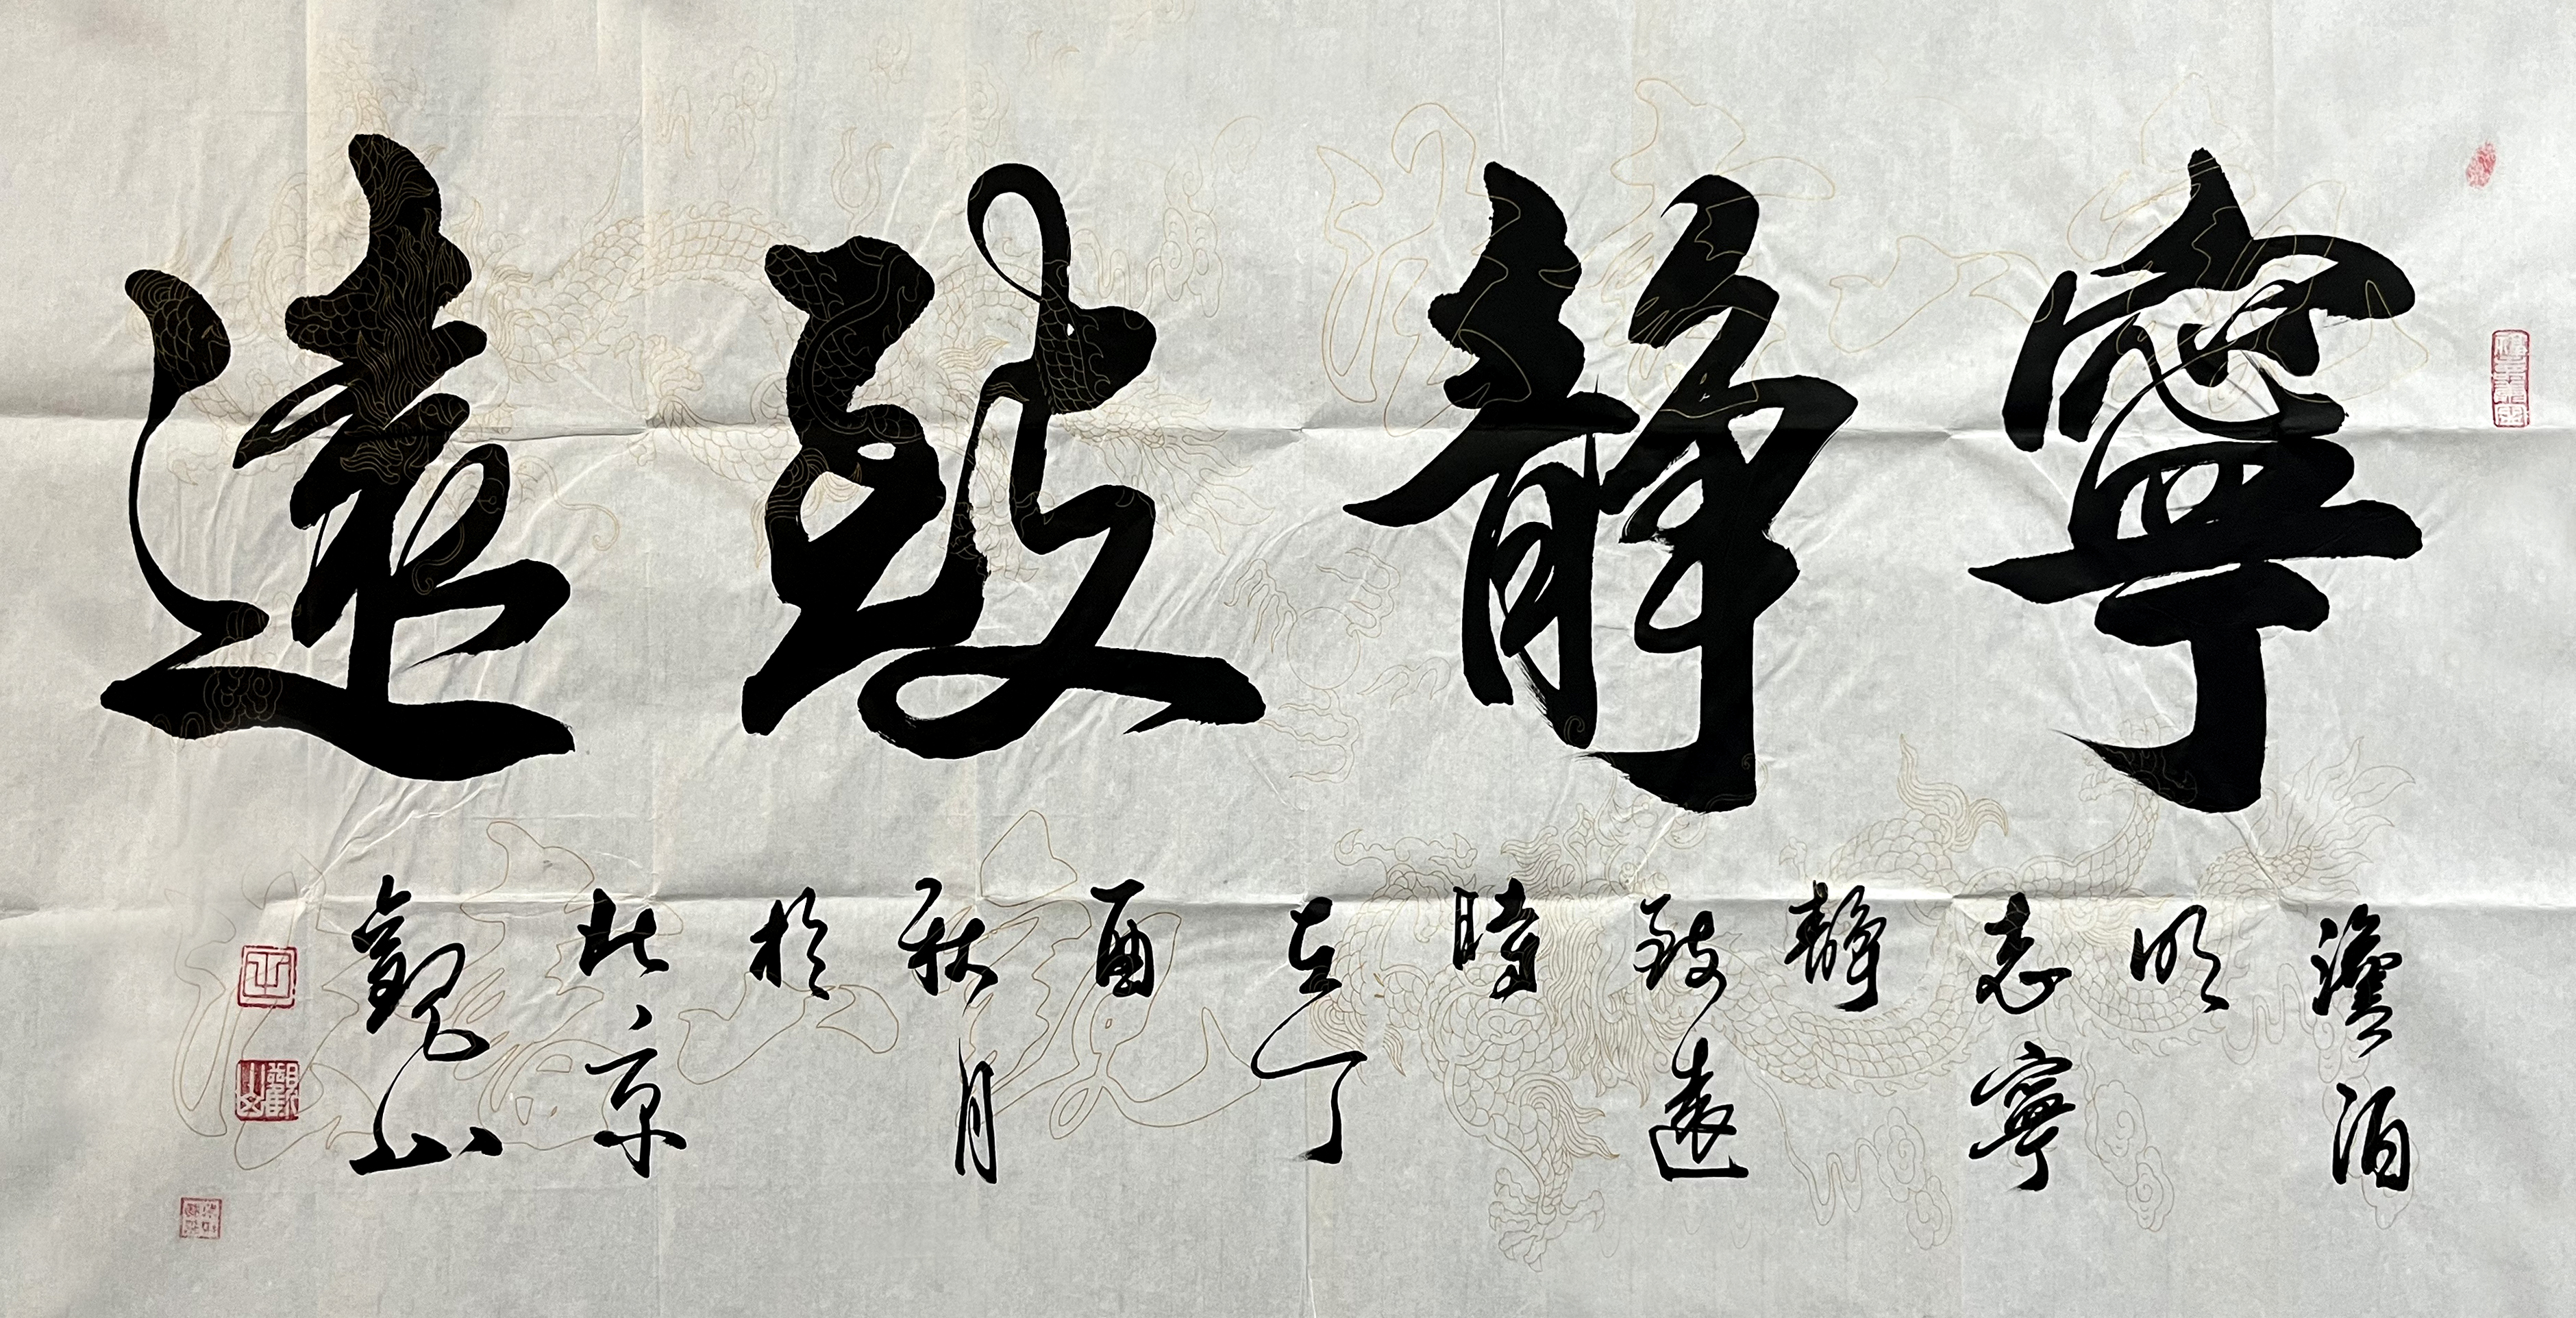 寧靜致遠
澹泊
明
志寧
靜
致遠
時
在丁
酉
秋月
於
北京
觀山
觀山